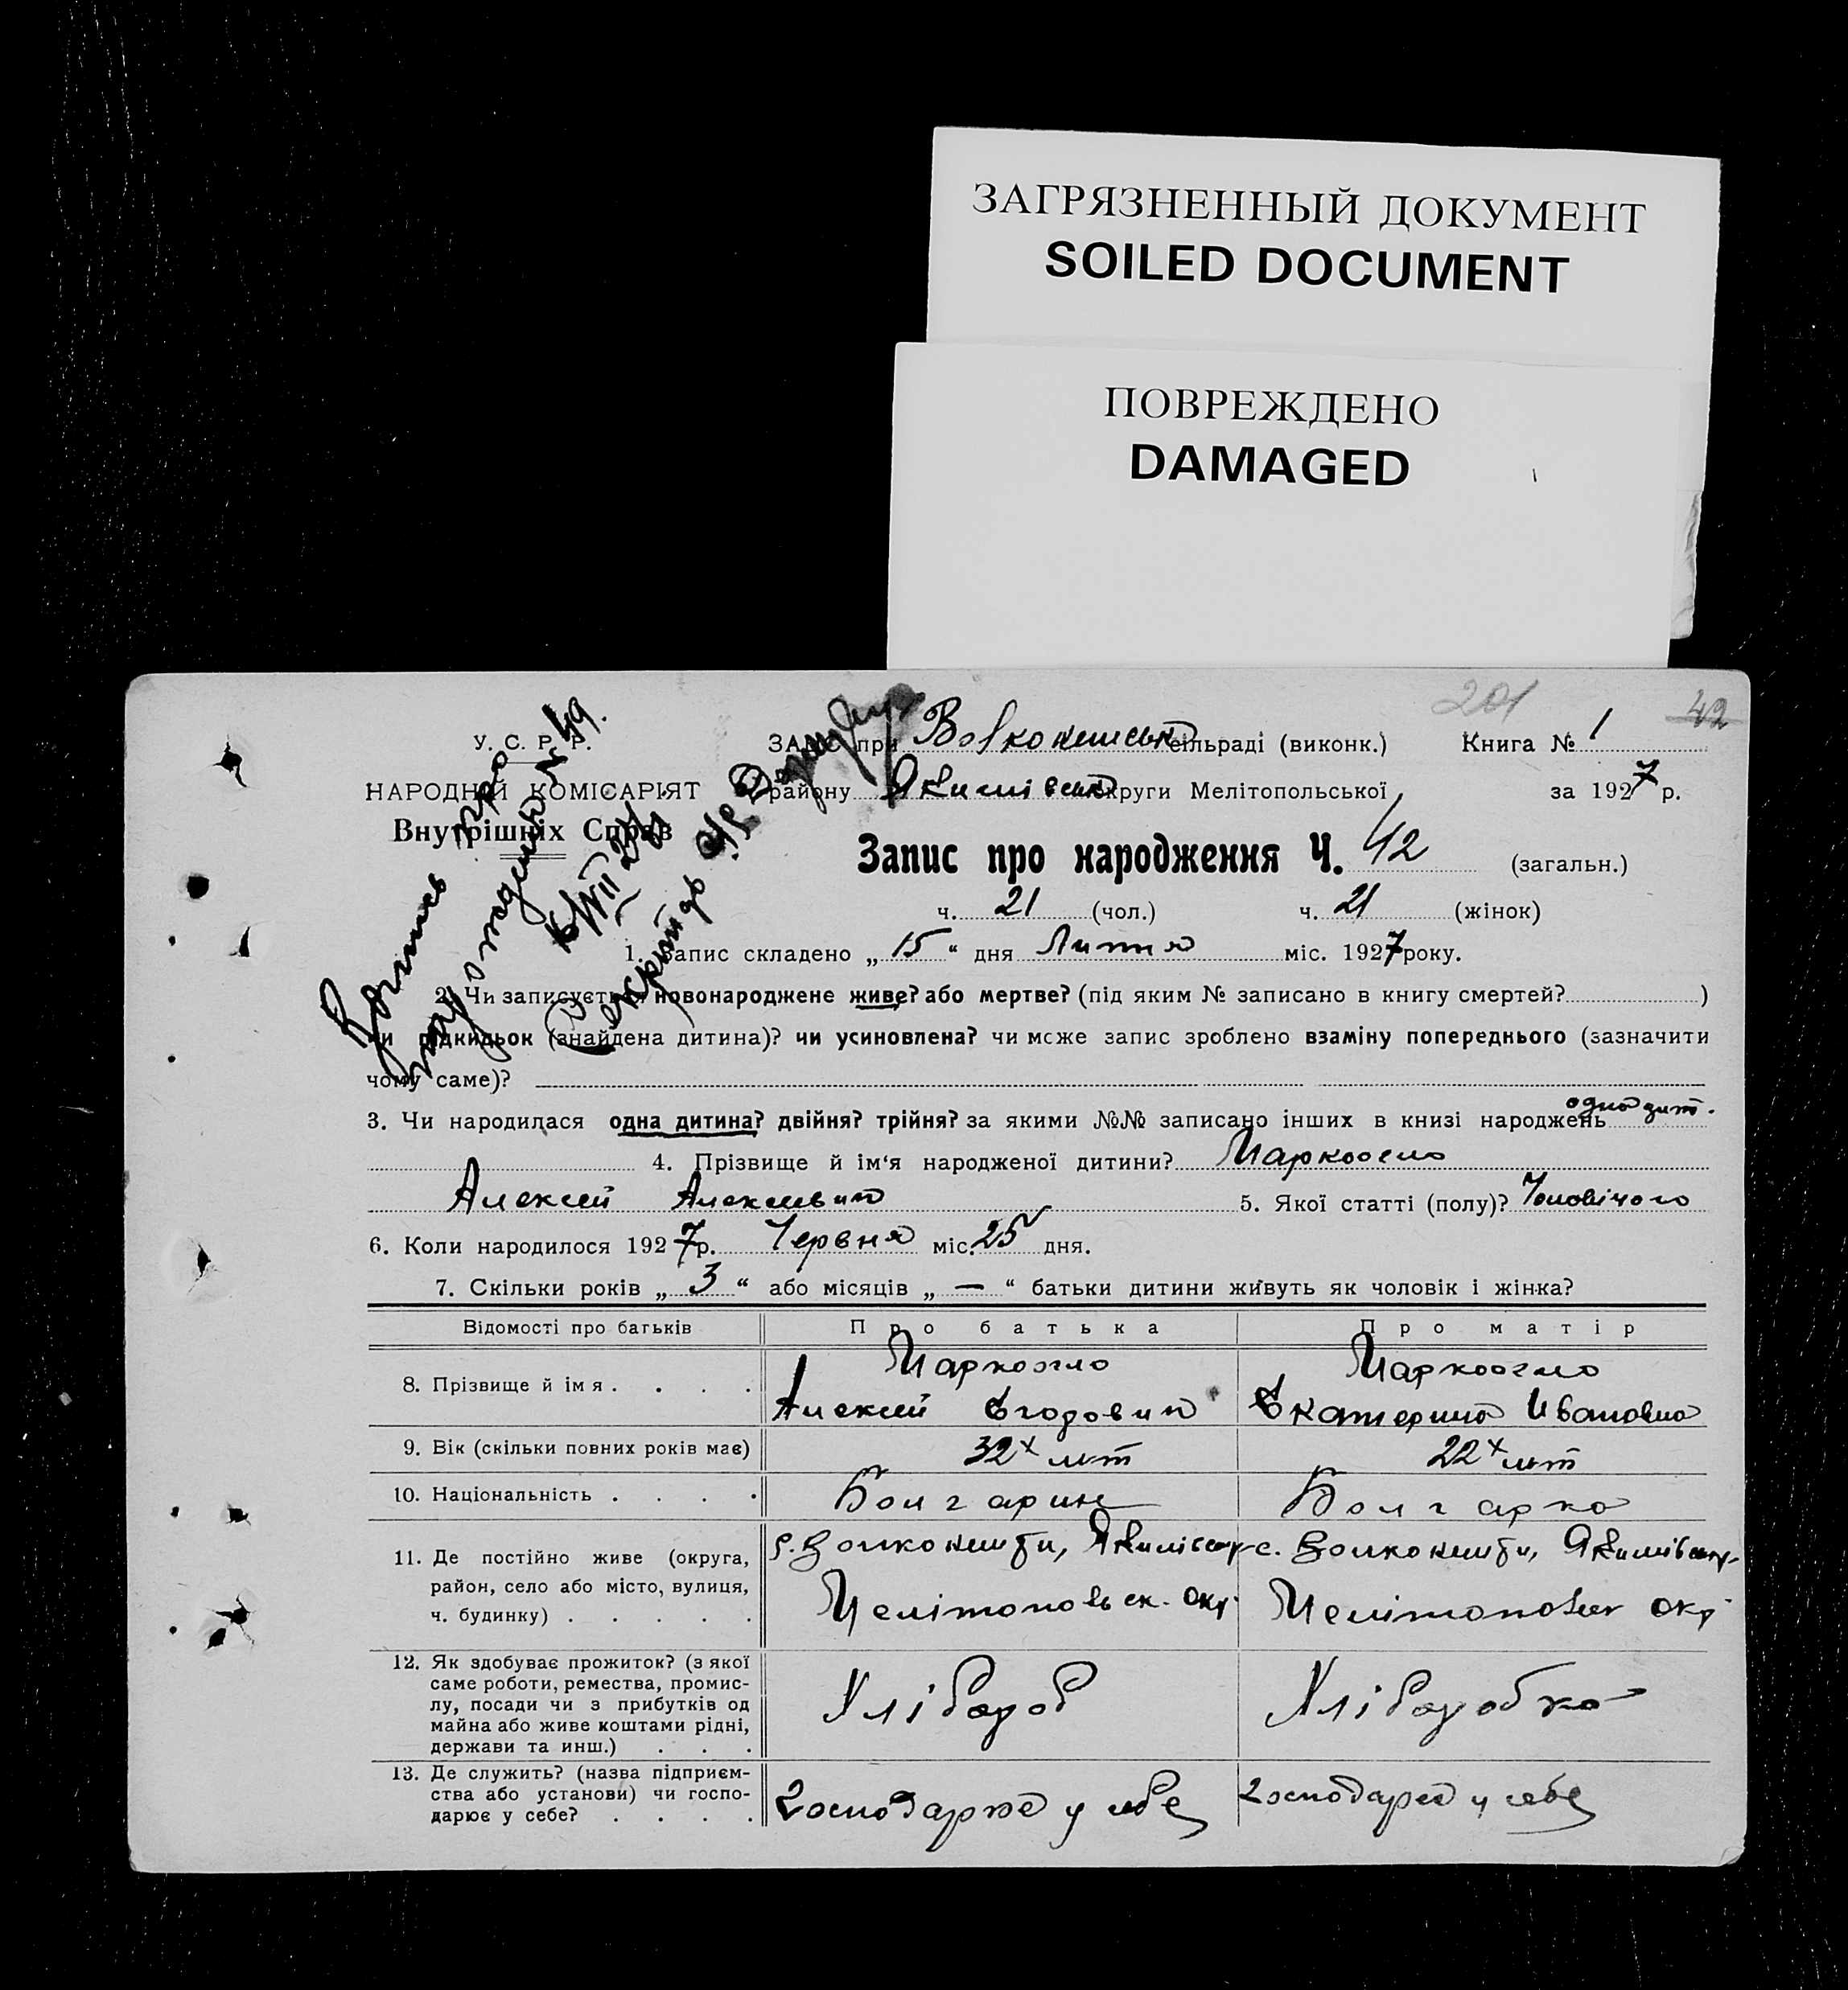 ЗАГРЯЗНЕННЫЙ ДОКУМЕНТ
SOILED DOCUMENT
ПОВРЕЖДЕНО
DAMAGED
201 42
У. С. Р. Р.
НАРОДНІЙ КОМІСАРІЯТ
Внутрішніх Справ
ЗАГС при Волконешськ сільраді (виконк.) Книга № 1
району Якимівськ округи Мелітопольської за 1927 р.
Запис про народження Ч. 42 (загальн.)
ч. 21 (чол.) ч. 21 (жінок)
1. Запис складено „ 15 “ дня Липня міс. 1927 року.
2. Чи записується новонароджене живе? або мертве? (під яким № записано в книгу смертей? )
чи підкидьок (знайдена дитина)? чи усиновлена? чи може запис зроблено взаміну попереднього (зазначити
чому саме)?
3. Чи народилася одна дитина? двійня? трійня? за якими №№ записано інших в книзі народжень одна дит.
4. Прізвище й ім‘я народженої дитини? Маркоогло
Алексей Алексевич 5. Якої статті (полу)? Чоловічого
6. Коли народилося 1927 р. Червня міс. 25 дня.
7. Скільки років „ 3 “ або місяців „ — “ батьки дитини живуть як чоловік і жінка?
Відомості про батьків Про батька Про матір
8. Прізвище й імя . . . . Маркоогло Маркоогло
Алексей Егорович Екатерина Ивановна
9. Вік (скільки повних років має) 32х лет 22х лет
10. Національність . . . . Болгарин Болгарка
11. Де постійно живе (округа, с. Волконешти, Якимівськ с. Волконешти, Якимівськ
район, село або місто, вулиця, Мелітопольск. окр. Мелітопольск окр
ч. будинку) . . . . .
12. Як здобуває прожиток? (з якої
саме роботи, ремества, промис-
лу, посади чи з прибутків од Хлібороб Хліборобка
майна або живе коштами рідні,
держави та инш.) . . .
13. Де служить? (назва підприєм-
ства або установи) чи госпо- Господарює у себе Господарює у себе
дарює у себе? . . . .